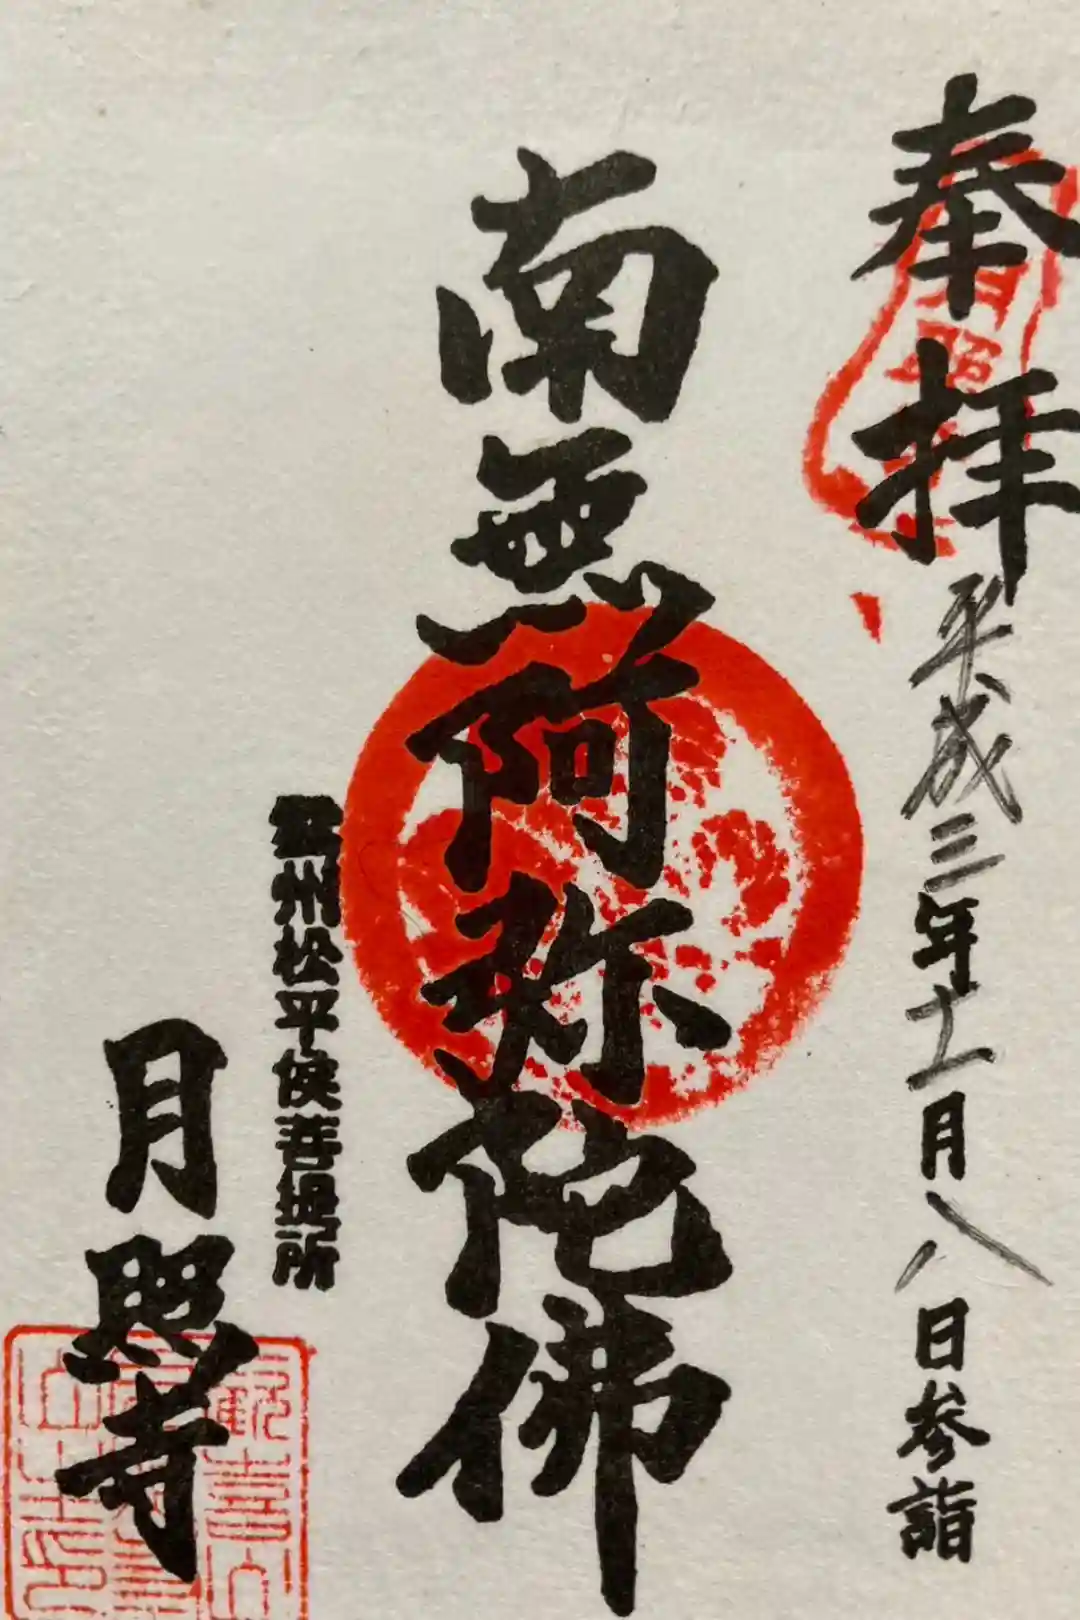 奉拝
平成三年十一月八日参詣
南無阿弥陀佛
雲州松平侯菩提所
月照寺